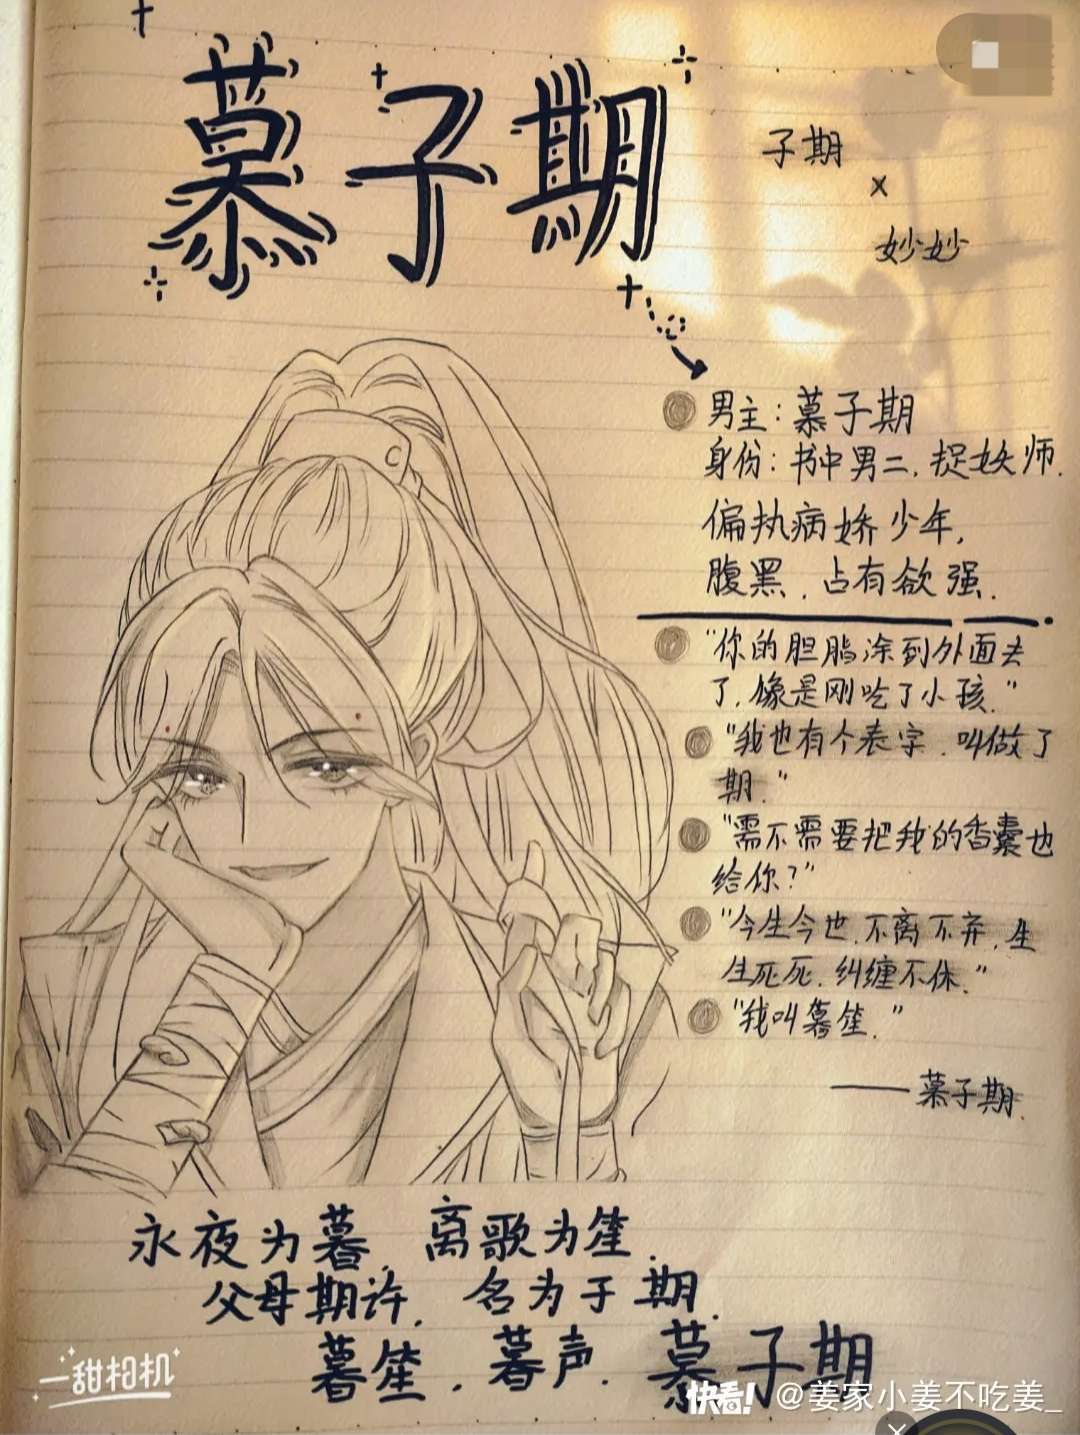 慕子期
子期
x
妙妙
男主：慕子期
身份：书中男二，捉妖师.
偏执病娇少年，
腹黑，占有欲强.
“你的胭脂涂到外面去
了，像是刚吃了小孩.”
“我也有个表字，叫做了
期.”
“需不需要把我的香囊也
给你？”
“今生今世，不离不弃，生
生死死，纠缠不休.”
“我叫暮笙.”
——慕子期.
永夜为暮，离歌为笙.
父母期许，名为子期.
暮笙，暮声，慕子期
一甜相机
快看! @姜家小姜不吃姜_